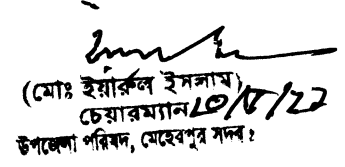 (মোঃ ইয়ারুল ইসলাম)
চেয়ারম্যান
উপজেলা পরিষদ, মেহেরপুর সদর।